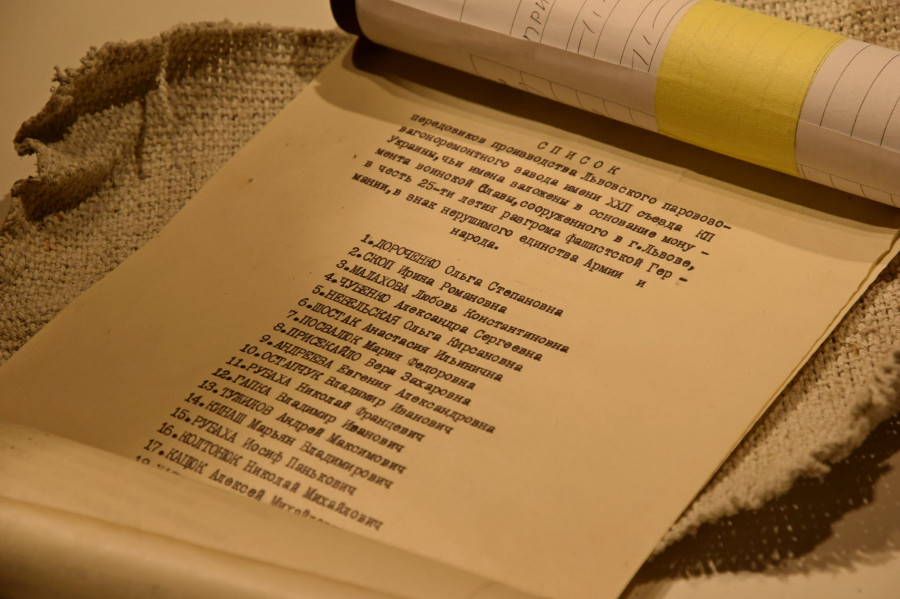 СПИСОК
передовиков производства Львовского паровозо-
вагоноремонтного завода имени XXII съезда КП
Украины, чьи имена заложены в основание мону -
мента воинской Славы, сооруженного в г.Львове,
в честь 25-ти летия разгрома фашистской Гер -
мании, в знак нерушимого единства Армии и
народа.
1.ДОРОЧЕНКО Ольга Степановна
2.СКОП Ирина Романовна
3.МАЛАХОВА Любовь Константиновна
4.ЧУБЕНКО Александра Сергеевна
5.НЕБЕЛЬСКАЯ Ольга Кирсановна
6.ШОСТАК Анастасия Ильинична
7.ПОСВАЛЮК Мария Федоровна
8.ПРИСЕКАЙЛО Вера Захаровна
9.АНДРЕЕВА Евгения Александровна
10.ОСТАПЧУК Владимир Иванович
11.РУБАХА Николай Францевич
12.ГАПКА Владимир Иванович
13.ТУЖИЛОВ Андрей Максимович
14.КИНАШ Марьян Владимирович
15.РУБАХА Иосиф Панькович
16.КОЛТОНЮК Николай Михайлович
17.КАЦЮК Алексей